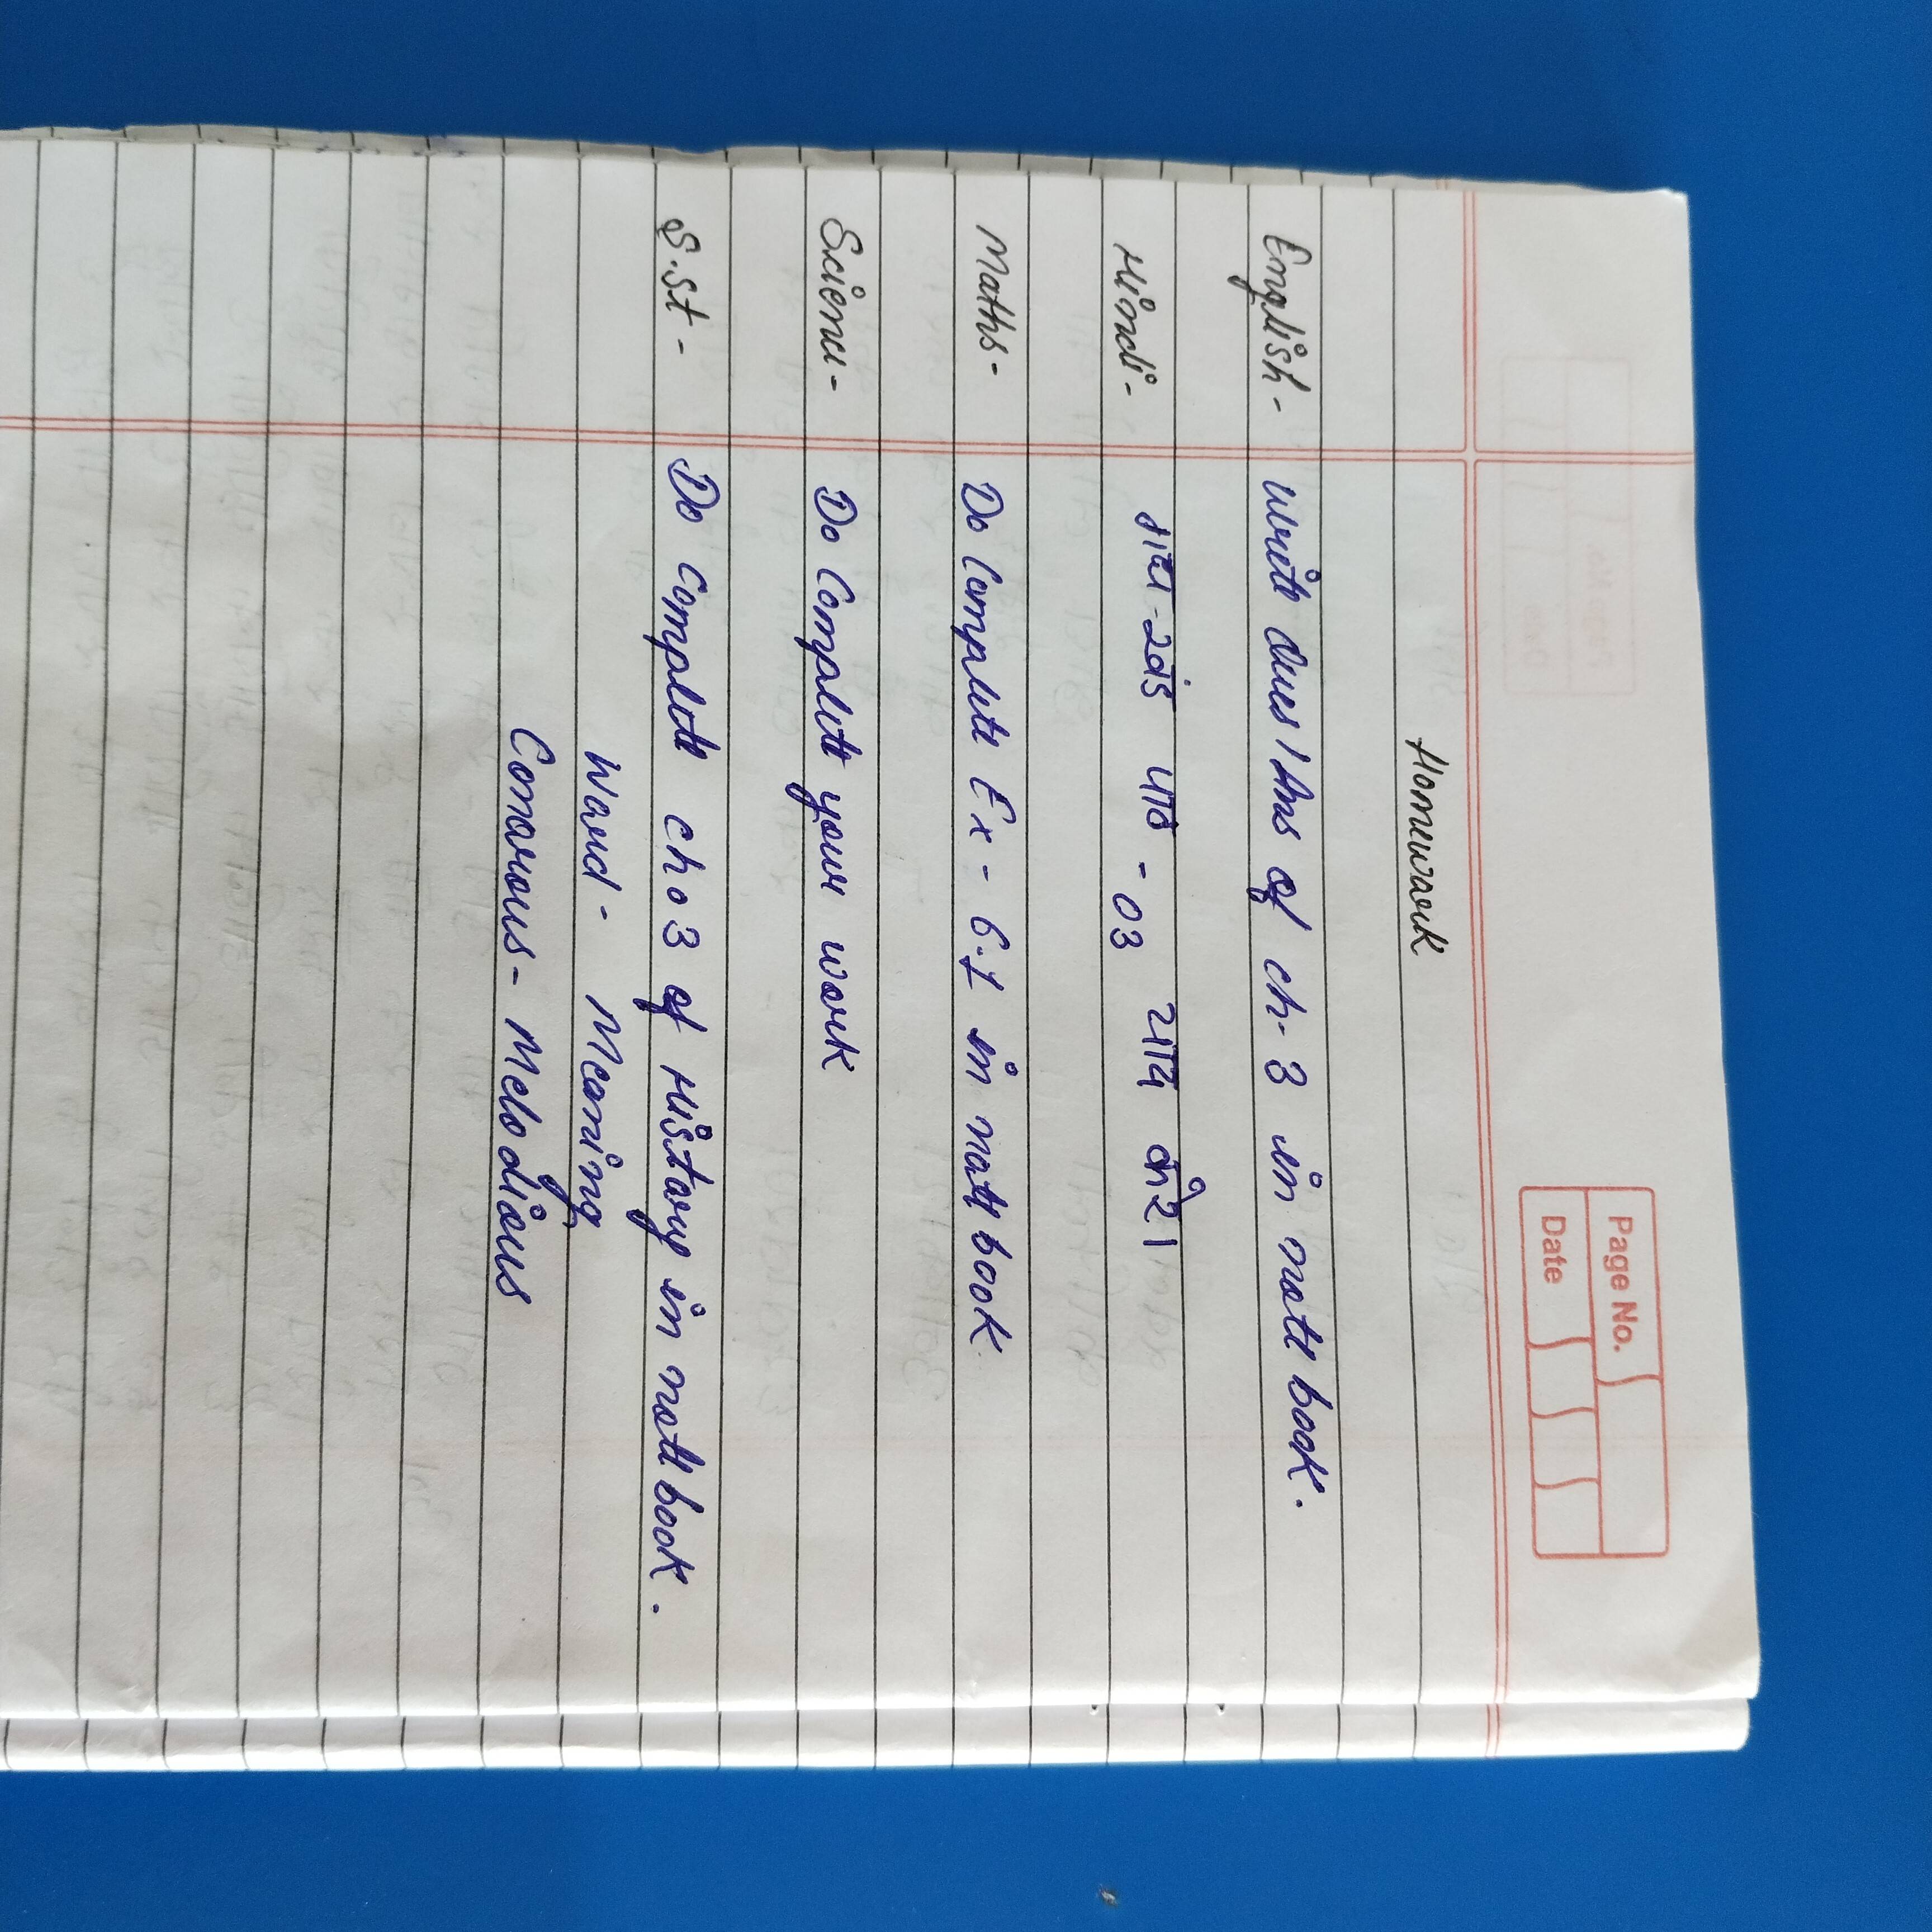 Page No.
Date
Homework
English- Write Ques/Ans of ch-3 in nott book.
Hindi- गद्य-खंड पाठ -03 याद करे।
Maths- Do Complete Ex- 6.1 in nott book.
Science- Do Complete your work
S.St- Do Complete ch03 of History in nott book.
Word- Meaning
Conorous- Melodious